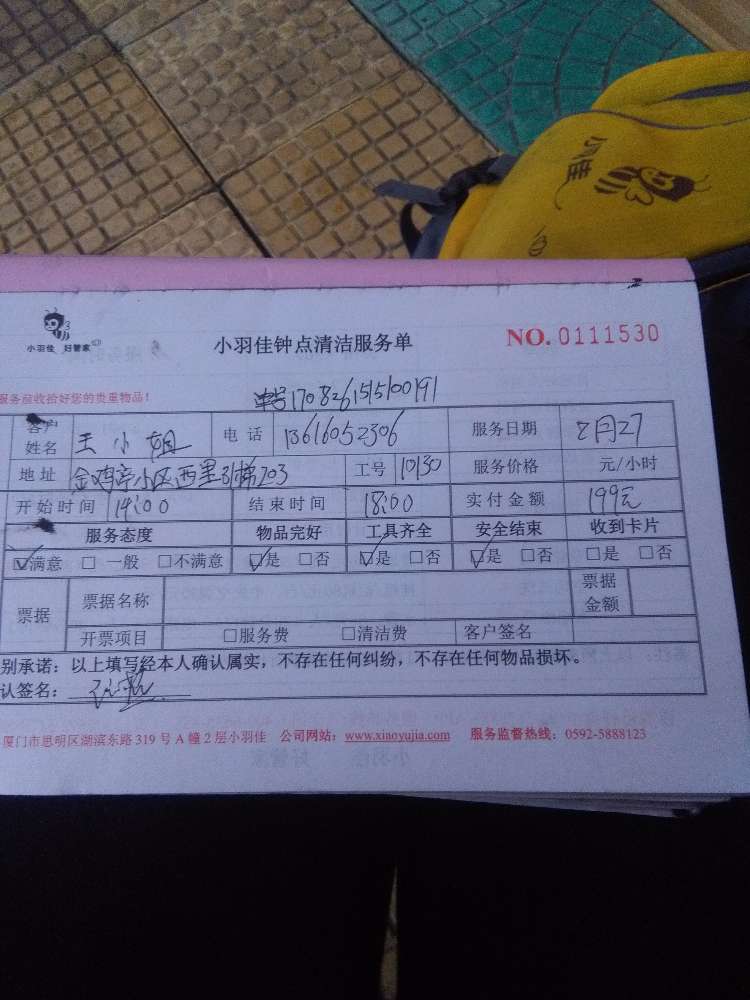 小羽佳
小羽佳 好管家
小羽佳钟点清洁服务单
NO. 0111530
服务前收拾好您的贵重物品！
单号170826151500191
客户姓名 王小姐 电话 13616052306 服务日期 2月27
地址 金鸡亭小区西里 梯203 工号 10130 服务价格 元/小时
开始时间 14:00 结束时间 18:00 实付金额 199元
服务态度 物品完好 工具齐全 安全结束 收到卡片
☑满意 □ 一般 □不满意 ☑是 □否 ☑是 □否 ☑是 □否 □是 □否
票据 票据名称 票据金额
开票项目 □服务费 □清洁费 客户签名
别承诺：以上填写经本人确认属实，不存在任何纠纷，不存在任何物品损坏。
认签名：
厦门市思明区湖滨东路 319 号 A 幢 2 层小羽佳 公司网站：www.xiaoyujia.com 服务监督热线：0592-5888123